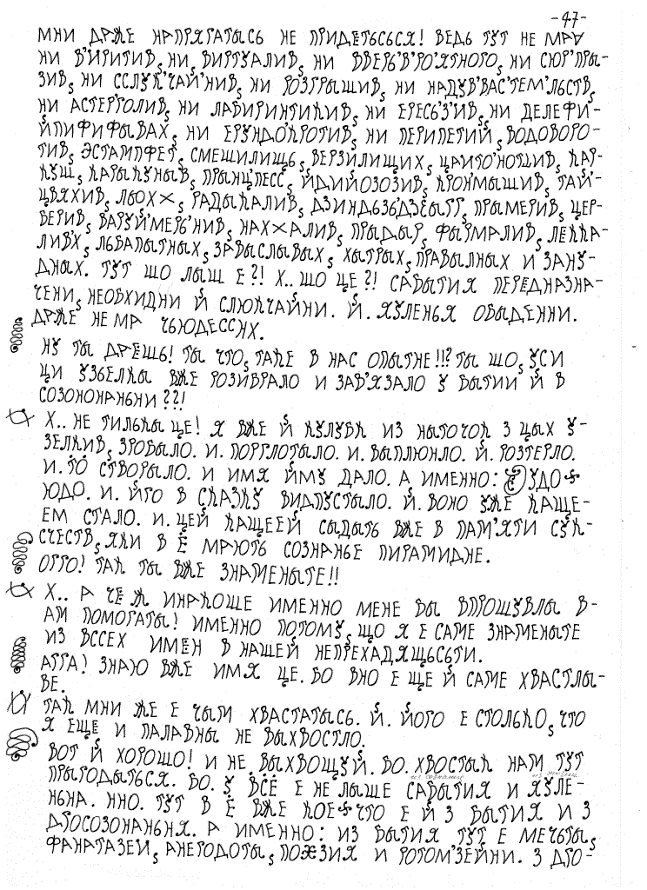 -47-
МНИ ДАЖЕ НАПРЯГАТЫСЬ НЕ ПРИДЕТЬСЬСЯ! ВЕДЬ ТУТ НЕ МАЯ
НИ В'ИРИТИВ, НИ ВИРТУАЛИВ, НИ ВВЕРЬ'В'РОЯТНОГО, НИ СЮР'ПРЫ-
ЗИВ, НИ ССЛУК'ЧАЙ'НИВ, НИ РОЗГРЫШИВ, НИ НАДУВ'ВАС'ТЕМ'ЛЬСТВ,
НИ АСТЕРГОЛИВ, НИ ЛАБИРИНТИКИВ, НИ ЕРЕСЬ'З'ИВ, НИ ДЕЛЕФИ-
ЙПИФИФЫВАХ, НИ ЕРУНДОКРОТИВ, НИ ПЕРИПЕТИЙ, ВОДОВОРО-
ТИВ, ЭСТАМПФЕТ, СМЕШИЛИЩЬ, ВЕРЗИЛИЩИХ, ЦАИТО'НОТЦИВ, КАР-
КУШ, КАРЫКУНЫВ, ПРЫНЦ'ПЕСС, ЙДИЙОЗОЗИВ, КРОКМЫШИВ, ТАЙ-
ЦВЯХИВ, ЛЬОХХ, РАДЫКАЛИВ, ДЗИНДЬЗЬДЗЁЫРГ, ПРЫМЕРИВ, ЦЕР-
ВЕРИВ, ВАРУЙ'МЕРЬ'НИВ, НАХХАЛИВ, ПРЫДЫР, ФЫРМАЛИВ, ЛЕККА-
ЛИВ'Х, ЛЬВАПЫТНЫХ, ЗАВЫСЛЫВЫХ, ХЫТРЫХ, ПРАВЫЛНЫХ И ЗАНУ-
ДНЫХ. ТУТ ШО ЛЫШ Е?! Х.. ШО ЦЕ?! САБЫТИЯ ПЕРЕДНАЗНА-
ЧЕНИ, НЕОБХИДНИ Й СЛЮКЧАЙНИ. Й. ЯУЛЕНЬЯ ОБЫДЕННИ.
ДАЖЕ НЕМА ЧЬЮДЕССНХ.
НУ ТЫ ДАЁШЬ! ТЫ ЧТО, ТАКЕ В НАС ОПЫТНЕ!!? ТЫ ШО, УСИ
ЦИ УЗЬЕЛКЫ ВЖЕ РОЗИБРАЛО И ЗАВ'ЯЗАЛО У БЫТИИ Й В
СОЗОНОНАНЬНИ??!
Х.. НЕ ТИЛЬКЫ ЦЕ! Я ВЖЕ Й КУЛУБК ИЗ НЫТОЧОК З ЦЫХ У-
ЗЕЛКИВ, ЗРОБЫЛО. И. ПОРГЛОТЫЛО. И. ВЫПЛЮНЛО. Й. РОЗТЕРЛО.
И. ГО СТВОРЫЛО. И ИМЯ ЙМУ ДАЛО. А ИМЕННО: УДО-
ЮДО. И. ЙГО В СКАЗКУ ВИДПУСТЫЛО. Й. ВОНО УЖЕ КАЩЕ-
ЕМ СТАЛО. И. ЦЕЙ КАЩЕЕЙ СЫДЫТЬ ВЖЕ В ПАМ'ЯТИ СУК-
СЧЕСТВ, ЯКИ В Ё МАЮТЬ СОЗНАНЬЕ ПИРАМИДНЕ.
ОГГО! ТАК ТЫ ВЖЕ ЗНАМЕНЫТЕ!!
Х.. А ЧЁ Ж ИНАКОШЕ ИМЕННО МЕНЕ ВЫ ВПРОШУВЛЫ В-
АМ ПОМОГАТЫ! ИМЕННО ПОТОМУ, ЩО Я Е САМЕ ЗНАМЕНЫТЕ
ИЗ ВССЕХ ИМЁН В НАШЕЙ НЕПРЕХАДЯЩЬСЬТИ.
АГГА! ЗНАЮ ВЖЕ ИМЯ ЦЕ. БО ВНО Е ЩЕ Й САМЕ ХВАСТЛЫ-
ВЕ.
ТАК МНИ ЖЕ Е ЧЫМ ХВАСТАТЫСЬ. Й. ЙОГО Е СТОЛЬКО, ЧТО
Я ЕЩЁ И ПАЛАВНЫ НЕ ВЫХВОСТЛО.
ВОТ Й ХОРОШО! И НЕ ВЫХВОЩУЙ. БО. ХВОСТЫК НАМ ТУТ
ПРЫГОДЫТЬСЯ. БО. У ВСЁ Е НЕ ЛЫШЕ САБЫТИЯ И ЯУЛЕ-
НЬНА. ННО. ТУТ В Ё ВЖЕ КОЕ-ЧТО Е Й З БЫТИЯ И З
ДГОСОЗОНАНЬНЯ. А ИМЕННО: ИЗ БЫТИЯ ТУТ Е МЕЧЬТЫ,
ФАНАТАЗЕИ, АНЕГОДОТЫ, ПОЭЗИЯ И РОГОМ'ЗЕЙНИ. З ДГО-